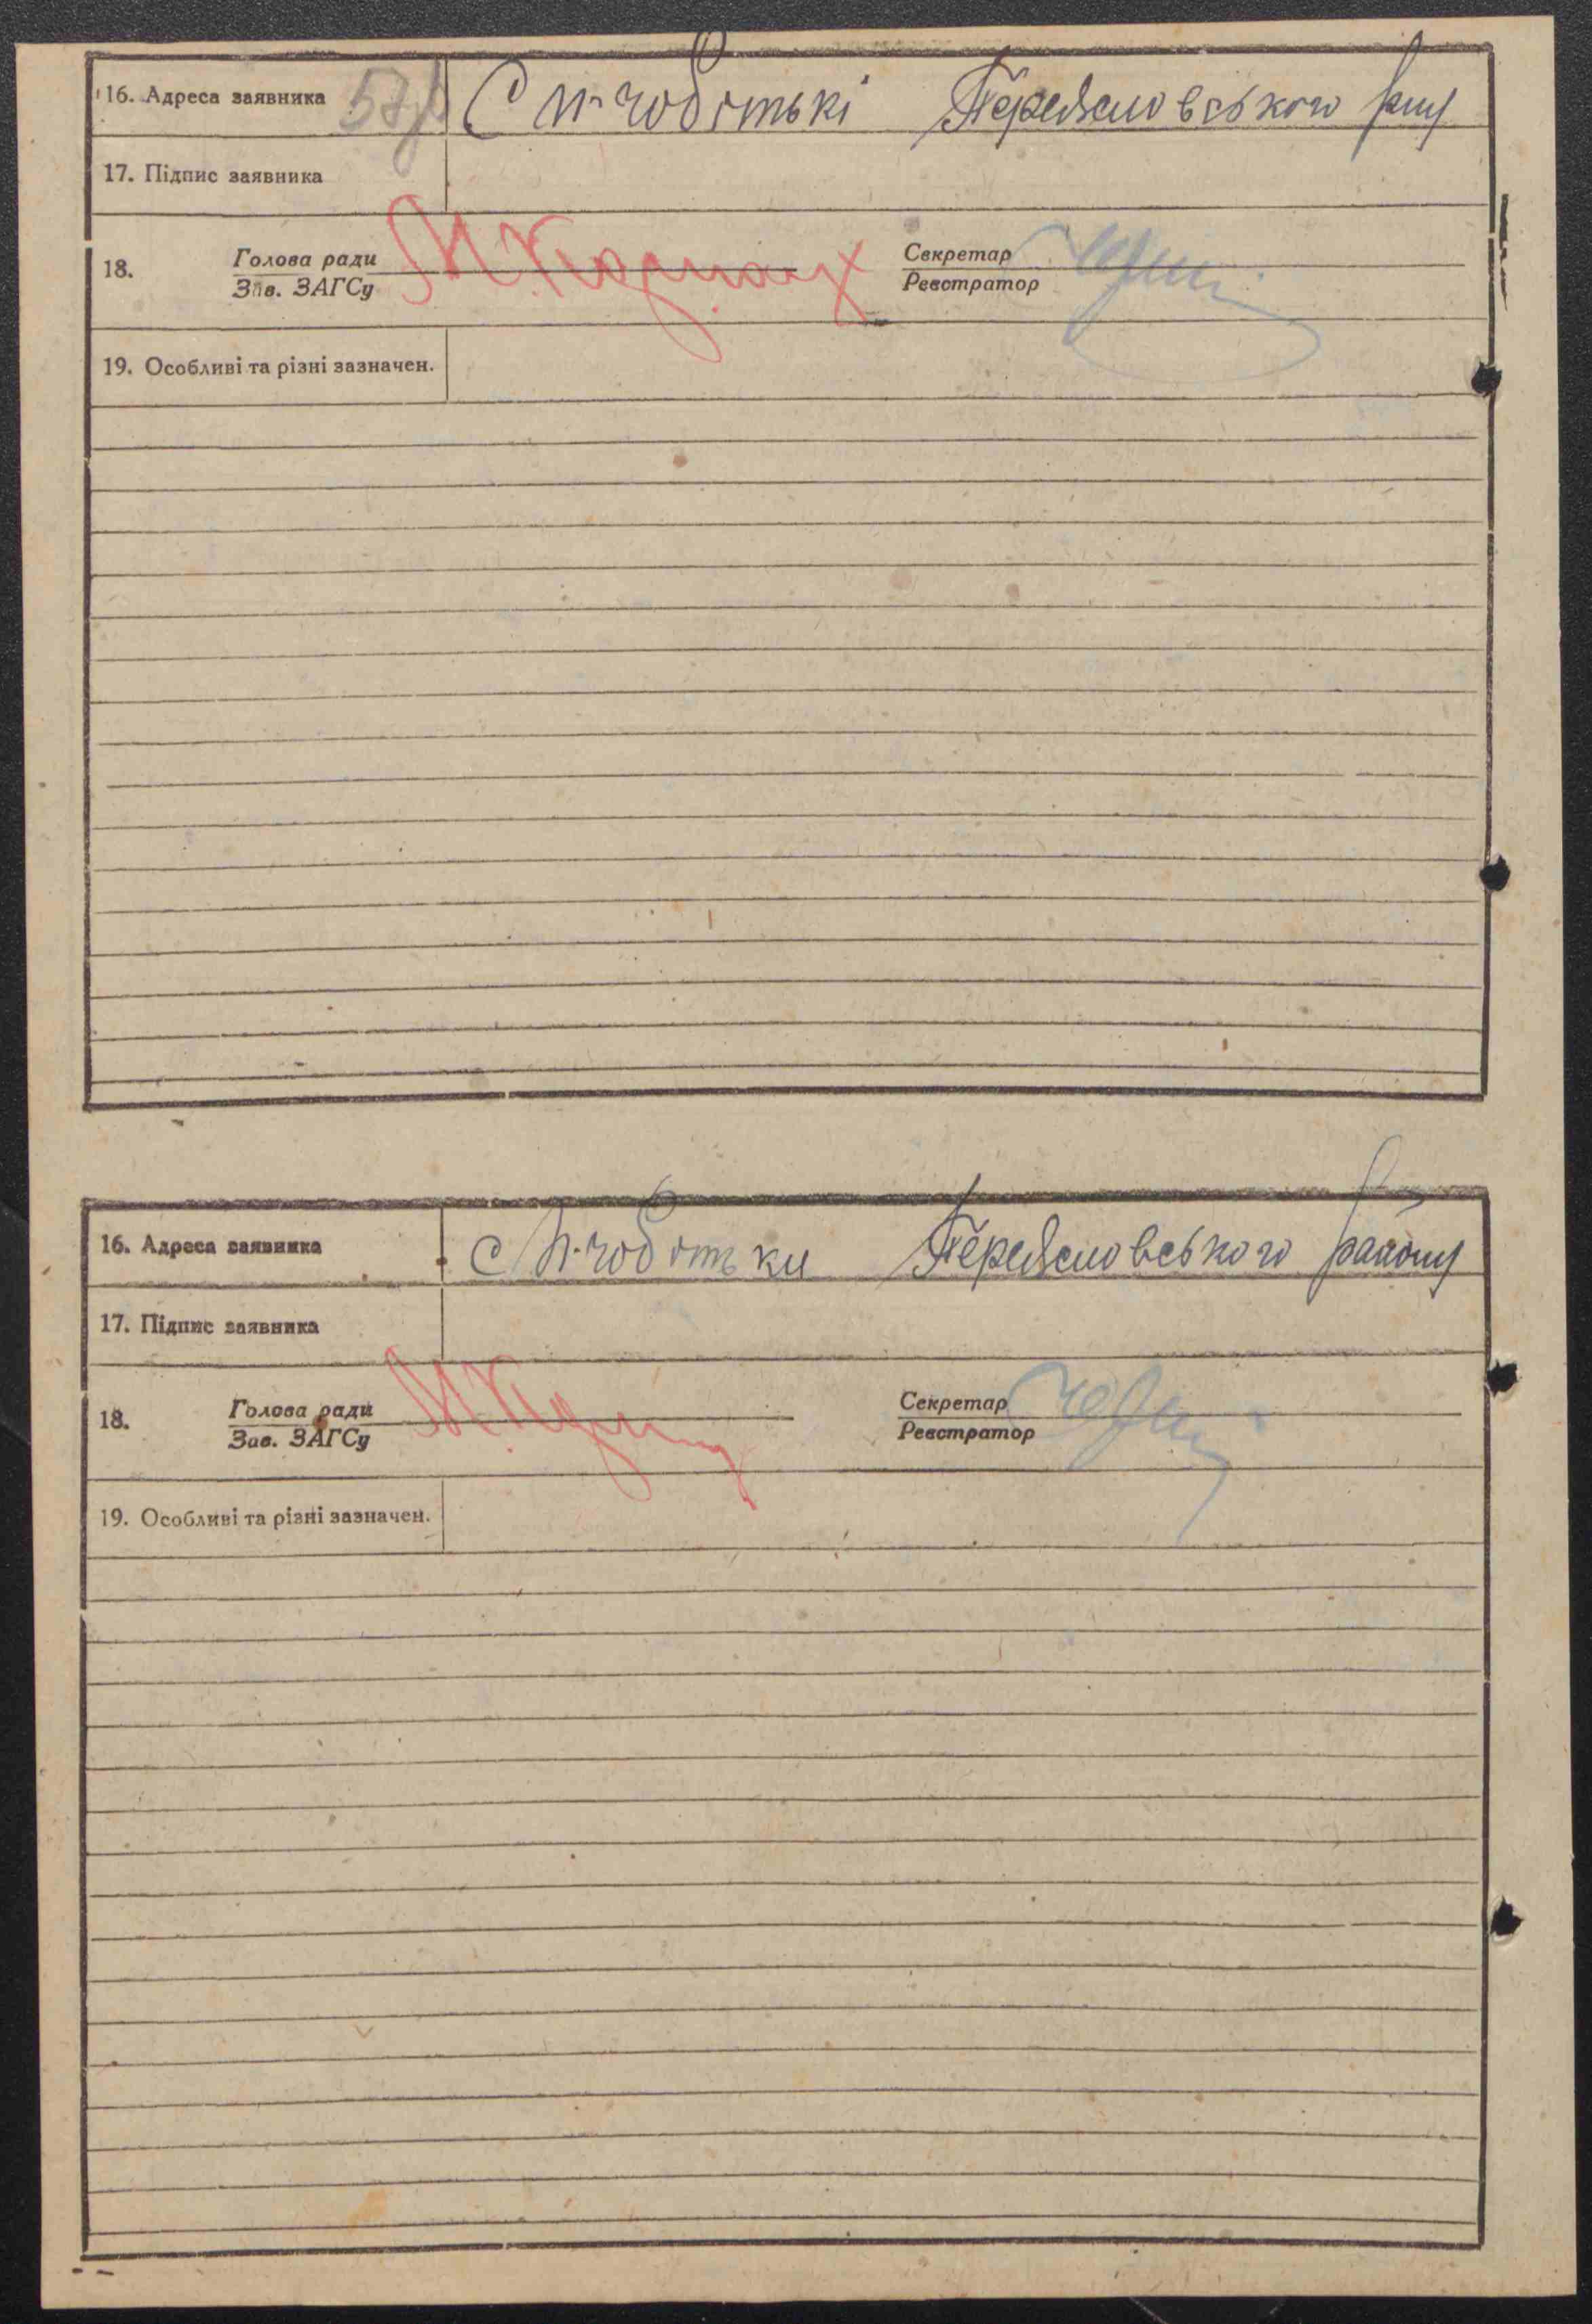 16. Адреса заявника С п-чобітькі Переясловського р-ну
17. Підпис заявника
18. Голова ради Секретар
Зав. ЗАГСу Реєстратор
19. Особливі та різні зазначен.
16. Адреса заявника с п-чобітьки Переясловського району
17. Підпис заявника
18. Голова ради Секретар
Зав. ЗАГСу Реєстратор
19. Особливі та різні зазначен.